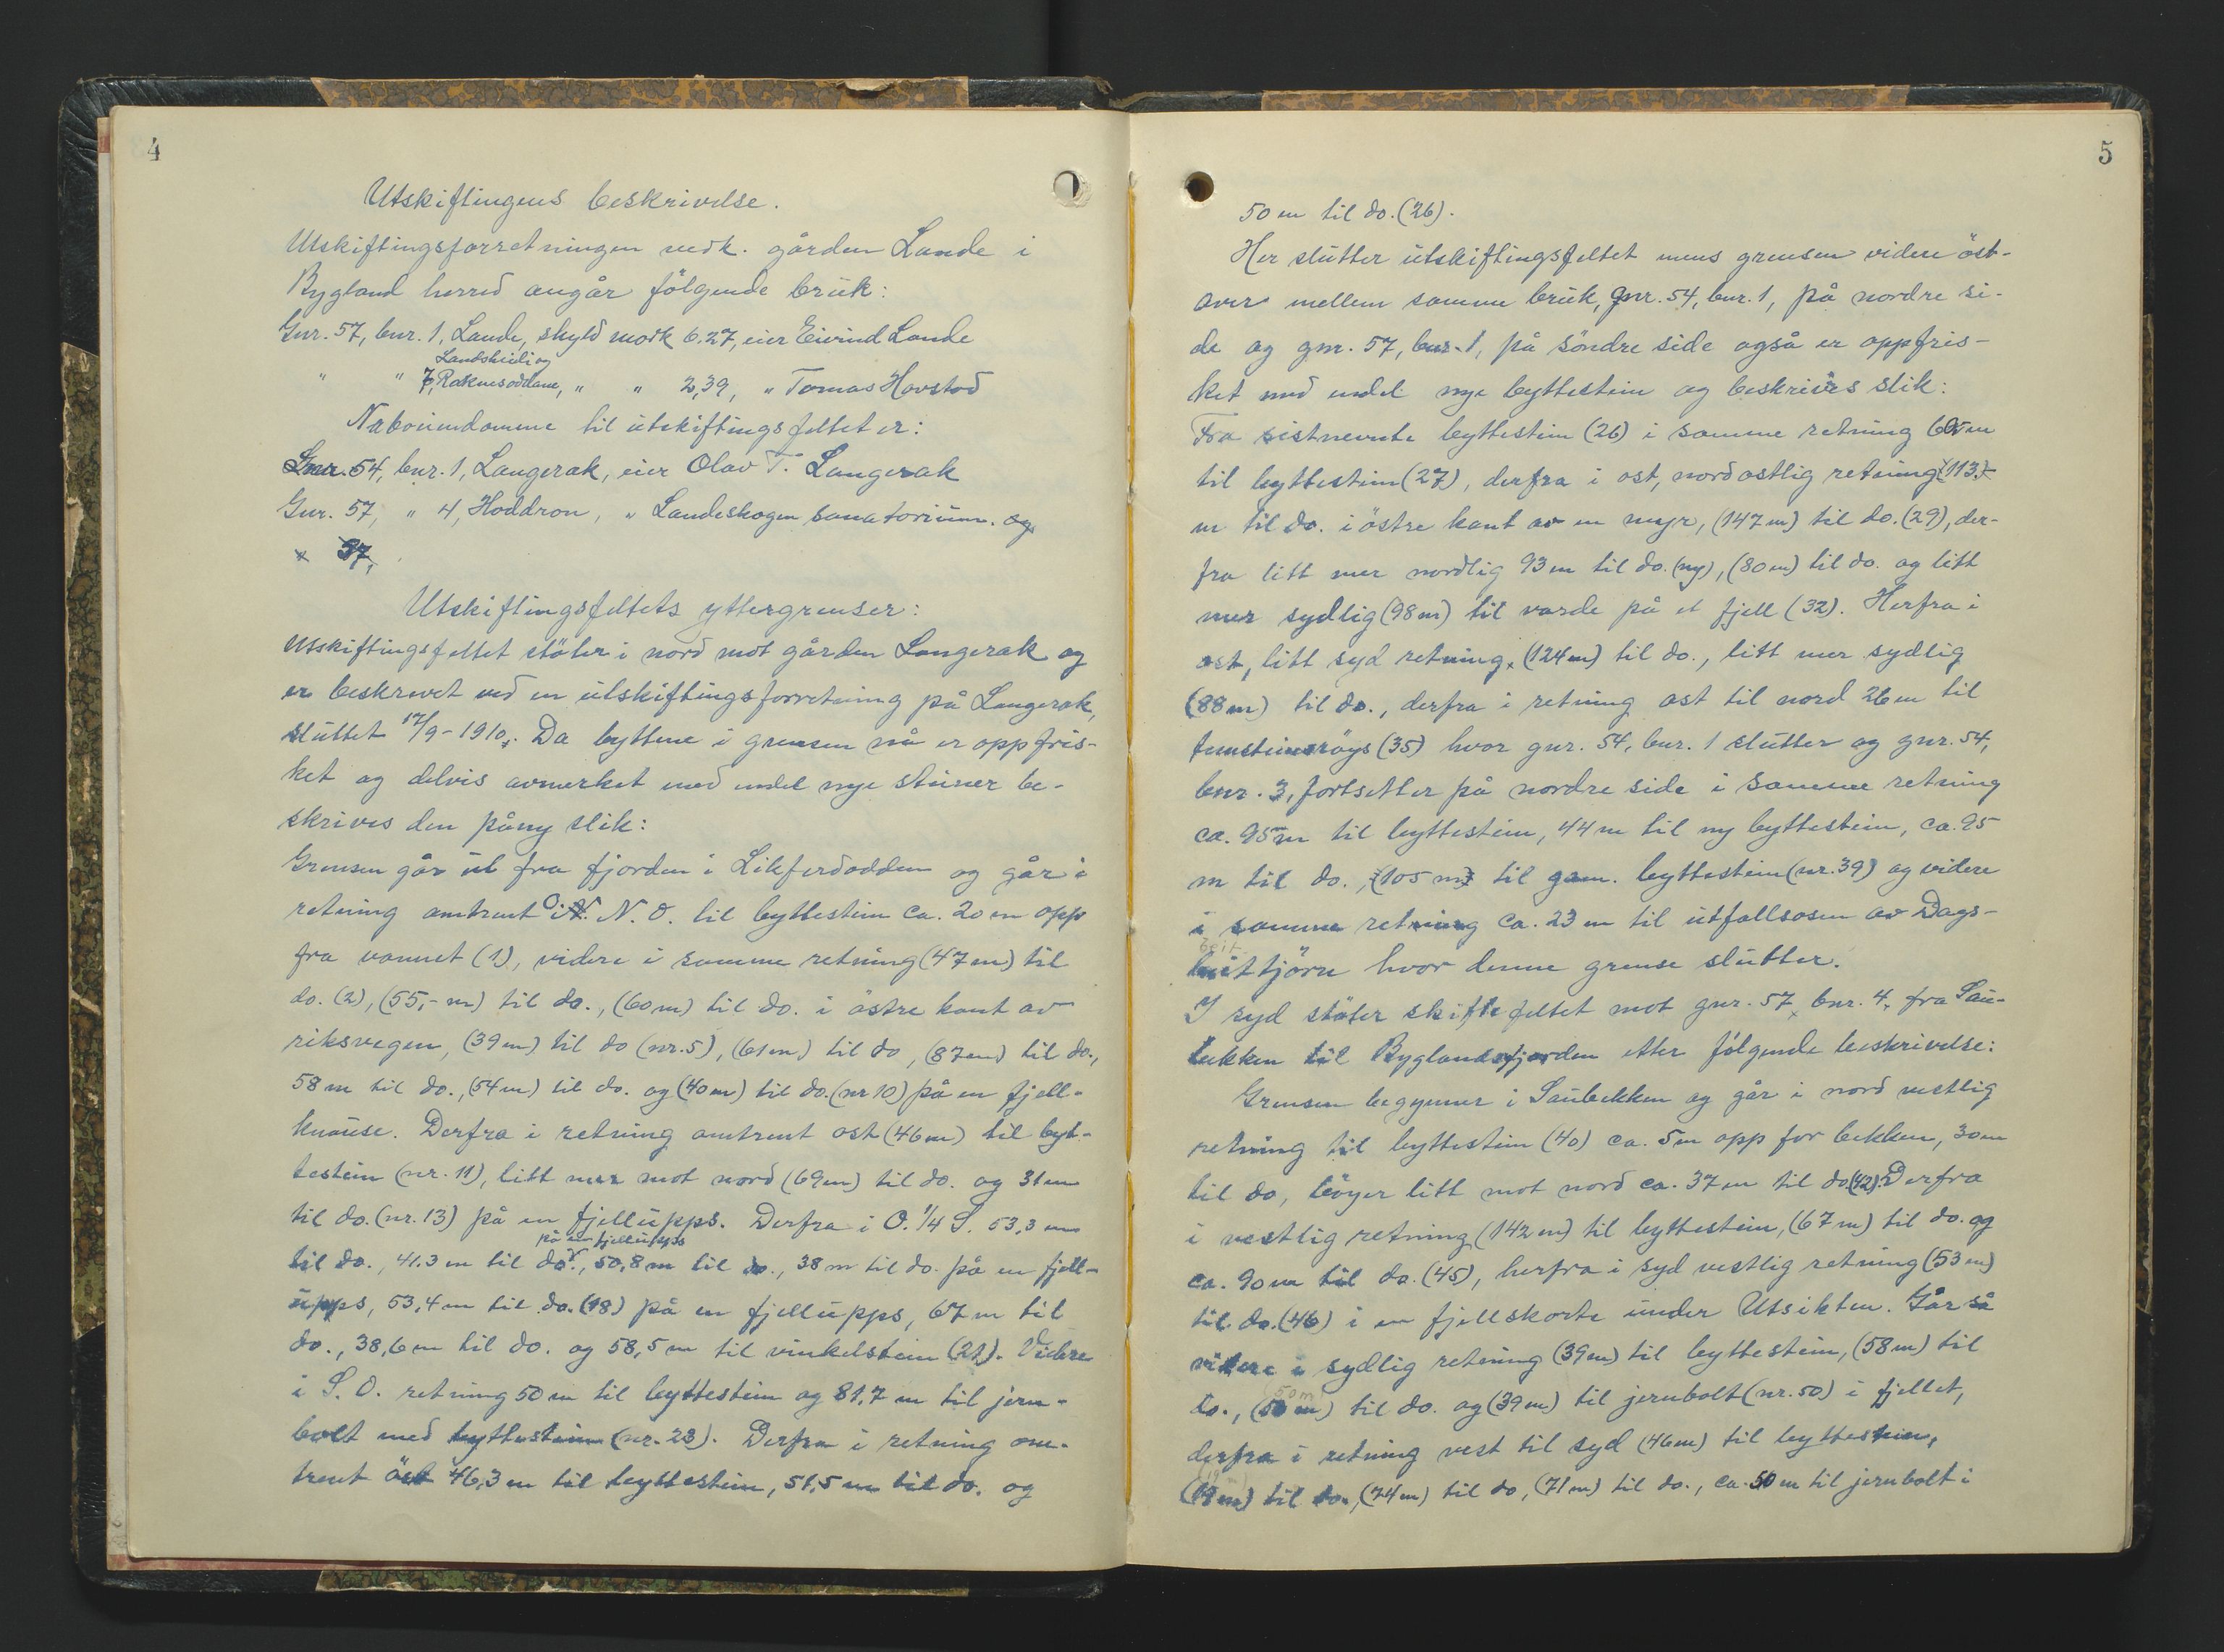 4
Utskiftingens beskrivelse.
Utskiftingsforretningen vedk. gården Lande i
Bygland herred angår følgende bruk:
Gnr. 57, bnr. 1, Lande, skyld mark 6.27, eier Eivind Lande
Landskeidi og
" " 7, Raknesoddane, " " 2,39, " Tomas Havstad
Naboeiendomme til utskiftingsfeltet er:
Gnr. 54, bnr. 1, Langerak, eier Olav T. Langerak
Gnr. 57, " 4, Hoddron, " Landeskogen sanatorium. og
" 57,
Utskiftingsfeltets yttergrenser:
Utskiftingsfeltet støter i nord mot gården Langerak og
er beskrevet ved en utskiftingsforretning på Langerak,
sluttet 17/9-1910. Da byttene i grensen nå er oppfris-
ket og delvis avmerket med endel nye steiner be-
skrives den påny slik:
Grensen går ut fra fjorden i Likferdodden og går i
retning omtrent O. N. O. til byttestein ca. 20 m opp
fra vannet (1), videre i samme retning (47 m) til
do. (2), (55,- m) til do., (60 m) til do. i østre kant av
riksvegen, (39 m) til do (nr. 5), (61 m) til do, (87 m) til do.,
58 m til do., (54 m) til do. og (40 m) til do. (nr 10) på en fjell-
knause. Derfra i retning omtrent ost (46 m) til byt-
testein (nr. 11), litt mer mot nord (69 m) til do. og 31 m
til do. (nr. 13) på en fjellupps. Derfra i O. 1/4 S. 53,3 m
på en fjellupps
til do., 41.3 m til do., 50,8 m til do., 38 m til do. på en fjell-
upps, 53,4 m til do. (18) på en fjellupps, 67 m til
do., 38,6 m til do. og 58,5 m til vinkelstein (21). Videre
i S. O. retning 50 m til byttestein og 81,7 m til jern-
bolt med byttestein (nr. 23). Derfra i retning om-
trent øst 46,3 m til byttestein, 51,5 m til do. og
5
50 m til do. (26).
Her slutter utskiftingsfeltet mens grensen videre øst-
over mellem samme bruk, gnr. 54, bnr. 1, på nordre si-
de og gnr. 57, bnr. 1, på søndre side også er oppfris-
ket med endel nye byttestein og beskrives slik:
Fra sistnevnte byttestein (26) i samme retning 65 m
til byttestein (27), derfra i ost, nordostlig retning (113.)
m til do. i østre kant av en myr, (147 m) til do. (29), der-
fra litt mer nordlig 93 m til do. (ny), (80 m) til do. og litt
mer sydlig (98 m) til varde på et fjell (32). Herfra i
ost, litt syd retning, (124 m) til do., litt mer sydlig
(88 m) til do., derfra i retning ost til nord 26 m til
femsteinsrøys (35) hvor gnr. 54, bnr. 1 slutter og gnr. 54,
bnr. 3, fortsetter på nordre side i samme retning
ca. 95 m til byttestein, 44 m til ny byttestein, ca. 95
m til do., (105 m) til gam. byttestein (nr. 39) og videre
i samme retning ca. 23 m til utfallsosen av Dags-
beit
tjørn hvor denne grense slutter.
I syd støter skiftefeltet mot gnr. 57, bnr. 4, fra Sau-
bekken til Byglandsfjorden etter følgende beskrivelse:
Grensen begynner i Saubekken og går i nord vestlig
retning til byttestein (40) ca. 5 m opp for bekken, 30 m
til do, bøyer litt mot nord ca. 37 m til do. (42). Derfra
i vestlig retning (142 m) til byttestein, (67 m) til do. og
ca. 90 m til do. (45), herfra i syd vestlig retning (53 m)
til do. (46) i en fjellskorte under Utsikten. Går så
videre i sydlig retning (39 m) til byttestein, (58 m) til
(50 m)
do., (50 m) til do. og (39 m) til jernbolt (nr. 50) i fjellet,
derfra i retning vest til syd (46 m) til byttestein,
(19 m) til do., (74 m) til do, (71 m) til do., ca. 50 m til jernbolt i